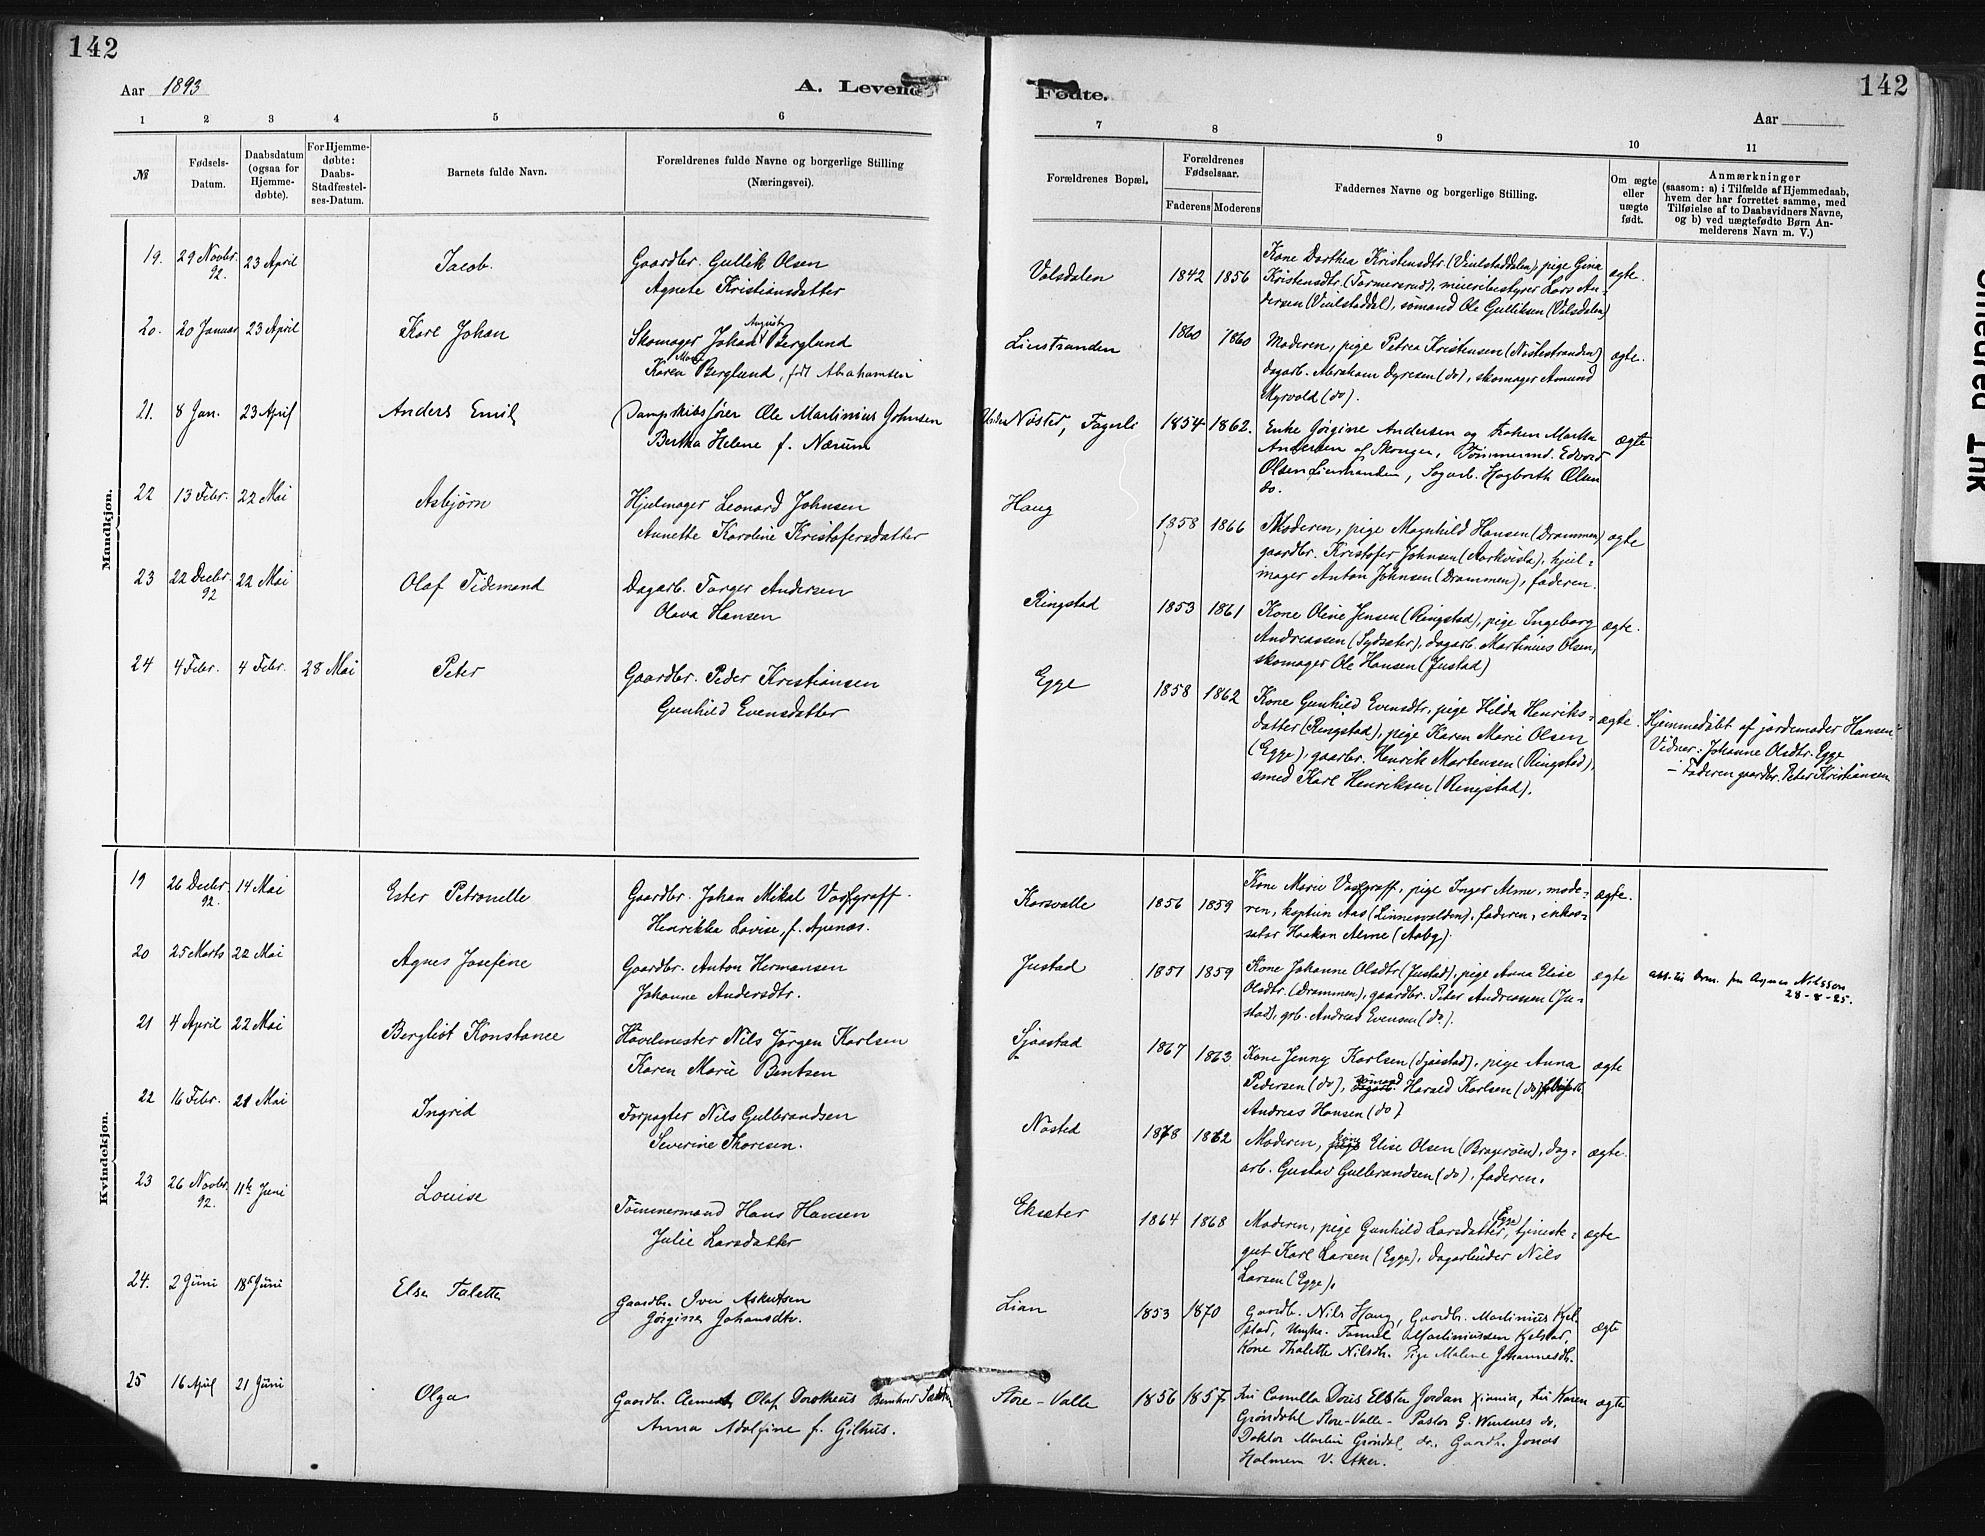 142
Aar 1893
A. Levende
1 2 3 4 5 6
№
Fødsels-
Datum.
Daabsdatum
(ogsaa for
Hjemme-
døbte).
For Hjemme-
døbte:
Daabs-
Stadfæstel-
ses-Datum.
Barnets fulde Navn.
Forældrenes fulde Navne og borgerlige Stilling
(Næringsvei).
Mandkjøn.
19. 29 Novbr. 92. 23 April Jacob. Gaardbr. Gullik Olsen
Agnete Kristiansdatter
20. 20 Januar 23 April Karl Johan Skomager Johan August Berglund
Karen Marie Berglund, født Abrahamsen
21. 8 Jan. 23 April Anders Emil Dampskibsfører Ole Martinius Johnsen
Bertha Helene f. Nærum
22 13 Febr. 22 Mai Asbjørn Hjulmager Leonard Johnsen
Annette Karoline Kristofersdatter
23 22 Decbr. 92 22 Mai Olaf Tidemand Dagarb. Torger Andersen
Olava Hansen
24 4 Febr. 4 Febr. 28 Mai Peter Gaardbr. Peder Kristiansen
Gunhild Evensdatter
Kvindekjøn.
19 26 Decbr. 92. 14 Mai Ester Petronelle Gaardbr. Johan Mikal Vossgraff.
Henrikke Lovise, f. Apenæs.
20 25 Marts 22 Mai Agnes Josefine Gaardbr. Anton Hermansen
Johanne Andersdtr.
21 4 April 22 Mai Bergliot Konstance Høvelmester Nils Jørgen Karlsen
Karen Marie Bentsen
22 16 Febr. 21 Mai Ingrid Forpagter Nils Gulbrandsen
Severine Thoresen.
23 26 Novbr. 92. 11te Juni Louise Tømmermand Hans Hansen
Julie Larsdatter
24. 2 Juni 18de Juni Else Talette Gaardbr. Iver Askertsen
Jørgine Johansdtr.
25 16 April 21 Juni Olga Gaardb. Clement Olaf Dorotheus Bernhard
Anna Adolfine f. Gilhus.
142
Fødte.
Aar
7 8 9 10 11
Forældrenes Bopæl.
Forældrenes
Fødselsaar.
Faderens Moderens
Faddernes Navne og borgerlige Stilling.
Om ægte
eller
uægte
født.
Anmærkninger
(saasom: a) i Tilfælde af Hjemmedaab,
hvem der har forrettet samme, med
Tilføielse af to Daabsvidners Navne,
og b) ved uægtefødte Børn An-
melderens Navn m. V.)
Valsdalen 1842 1856 Kone Dorthea Kristensdtr. (Viulstaddalen), pige Gina ægte.
Kristensdtr. (Tormersrud), meieribestyrer Lars An-
dersen (Viulstaddal), sømand Ole Gulliksen (Valsdalen)
Lierstranden 1860 1860 Moderen, pige Petrea Kristensen (Nøstestranden) ægte.
dagarb. Abraham Dyresen (do), skomager Amund
Myrvold (do).
Nøsted, Fagerli 1854 1862. Enke Jørgine Andersen og Frøken Martha ægte
Andersen af Skoger, Tømmermd. Edvard
Olsen Lierstranden, Sagarb. Hagbarth Olsen
do.
Haug 1858 1866 Moderen, pige Magnhild Hansen (Drammen) ægte
gaardbr. Kristofer Johnsen (Aarkvisla), hjul-
mager Anton Johnsen (Drammen), faderen.
Ringstad 1853 1861 Kone Oline Jensen (Ringstad), pige Ingeborg ægte.
Andreassen (Sydsæter), dagarb. Martinius Olsen,
skomager Ole Hansen (Justad)
Egge 1858 1862 Kone Gunhild Evensdtr., pige Hilda Henriks- ægte.
datter (Ringstad), pige Karen Marie Olsen
(Egge), gaarbr. Henrik Mortensen (Ringstad),
smed Karl Henriksen (Ringstad).
Hjemmedøbt af jordemoder Hansen
Vidner: Johanne Olsdtr. Egge
- Faderen gaardbr. Peter Kristiansen
Korsvalle 1856 1859 Kone Marie Vossgraff, pige Inger Arne, mode- ægte.
ren, kaptein Aas (Linnesvolden), faderen, inkas-
sator Haakon Arne (Aaby).
Justad 1851 1859 Kone Johanne Olsdtr. (Justad), pige Anna Elise ægte
Olsdtr. (Drammen), gaardbr. Peter Andreassen (Ju-
stad), grb. Andreas Evensen (do).
att. til Drm. fru Agnes Nilsson
28-8-25.
Sjaastad 1867 1863 Kone Jenny Karlsen (Sjaastad), pige Anna ægte
Pedersen (do), sømand Harald Karlsen (do)
Andreas Hansen (do)
Nøsted 1868 1862 Moderen, kone Elise Olsen (Bragerøen), dag- ægte.
arb. Gustav Gulbrandsen (do), faderen.
Eksæter 1864 1868 Moderen, pige Gunhild Larsdatter (Egge), tjeneste- ægte
gut Karl Larsen (Egge), dagarbeider Nils
Larsen (Egge).
Lian 1853 1870 Gaardb. Nils Haug, Gaardb. Martinius Kjel- ægte
stad, Ungka. Martiniussen Kjelstad,
Kone Thalette Nilsdtr. Pige Malene Johannesdtr.
Store-Valle 1856 1857 Fru Camilla Doris Elster Jordan, Fru Karen ægte
Grøndahl Store-Valle - Pastor G. Wensnes do,
Doktor Martin Grøndal do. Gaardb. Jonas
Holmen V. Aker.